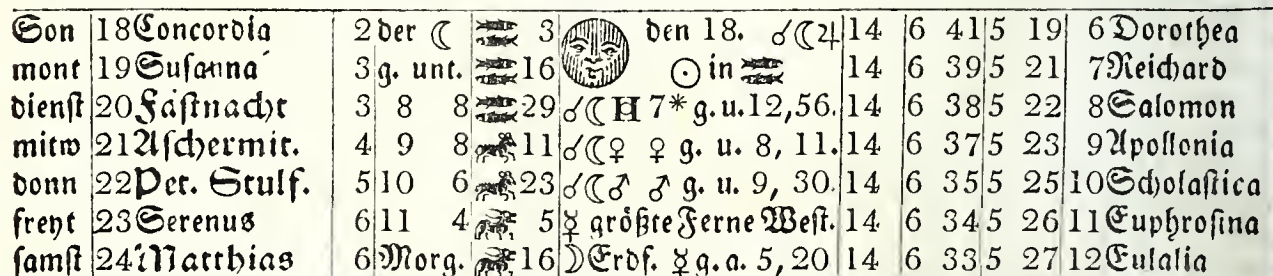 Son 18 Concordia 2 der ☾ ♓ 3 den 18. ☌☾♃ 14 6 41 5 19 6 Dorothea
mont 19 Susanna 3 g. unt. ♓ 16 ☉ in ♓ 14 6 39 5 21 7 Reichard
dienst 20 Fastnacht 3 8 8 ♓ 29 ☌☾♅ 7* g. u. 12, 56. 14 6 38 5 22 8 Salomon
mitw 21 Aschermit. 4 9 8 ♈ 11 ☌☾♀ ♀ g. u. 8, 11. 14 6 37 5 23 9 Apollonia
donn 22 Pet. Stulf. 5 10 6 ♈ 23 ☌☾♂ ♂ g. u. 9, 30. 14 6 35 5 25 10 Scholastica
freyt 23 Serenus 6 11 4 ♉ 5 ☿ größte Ferne West. 14 6 34 5 26 11 Euphrosina
samst 24 Matthias 6 Morg. ♉ 16 ☽ Erdf. ☿ g. a. 5, 20 14 6 33 5 27 12 Eulalia